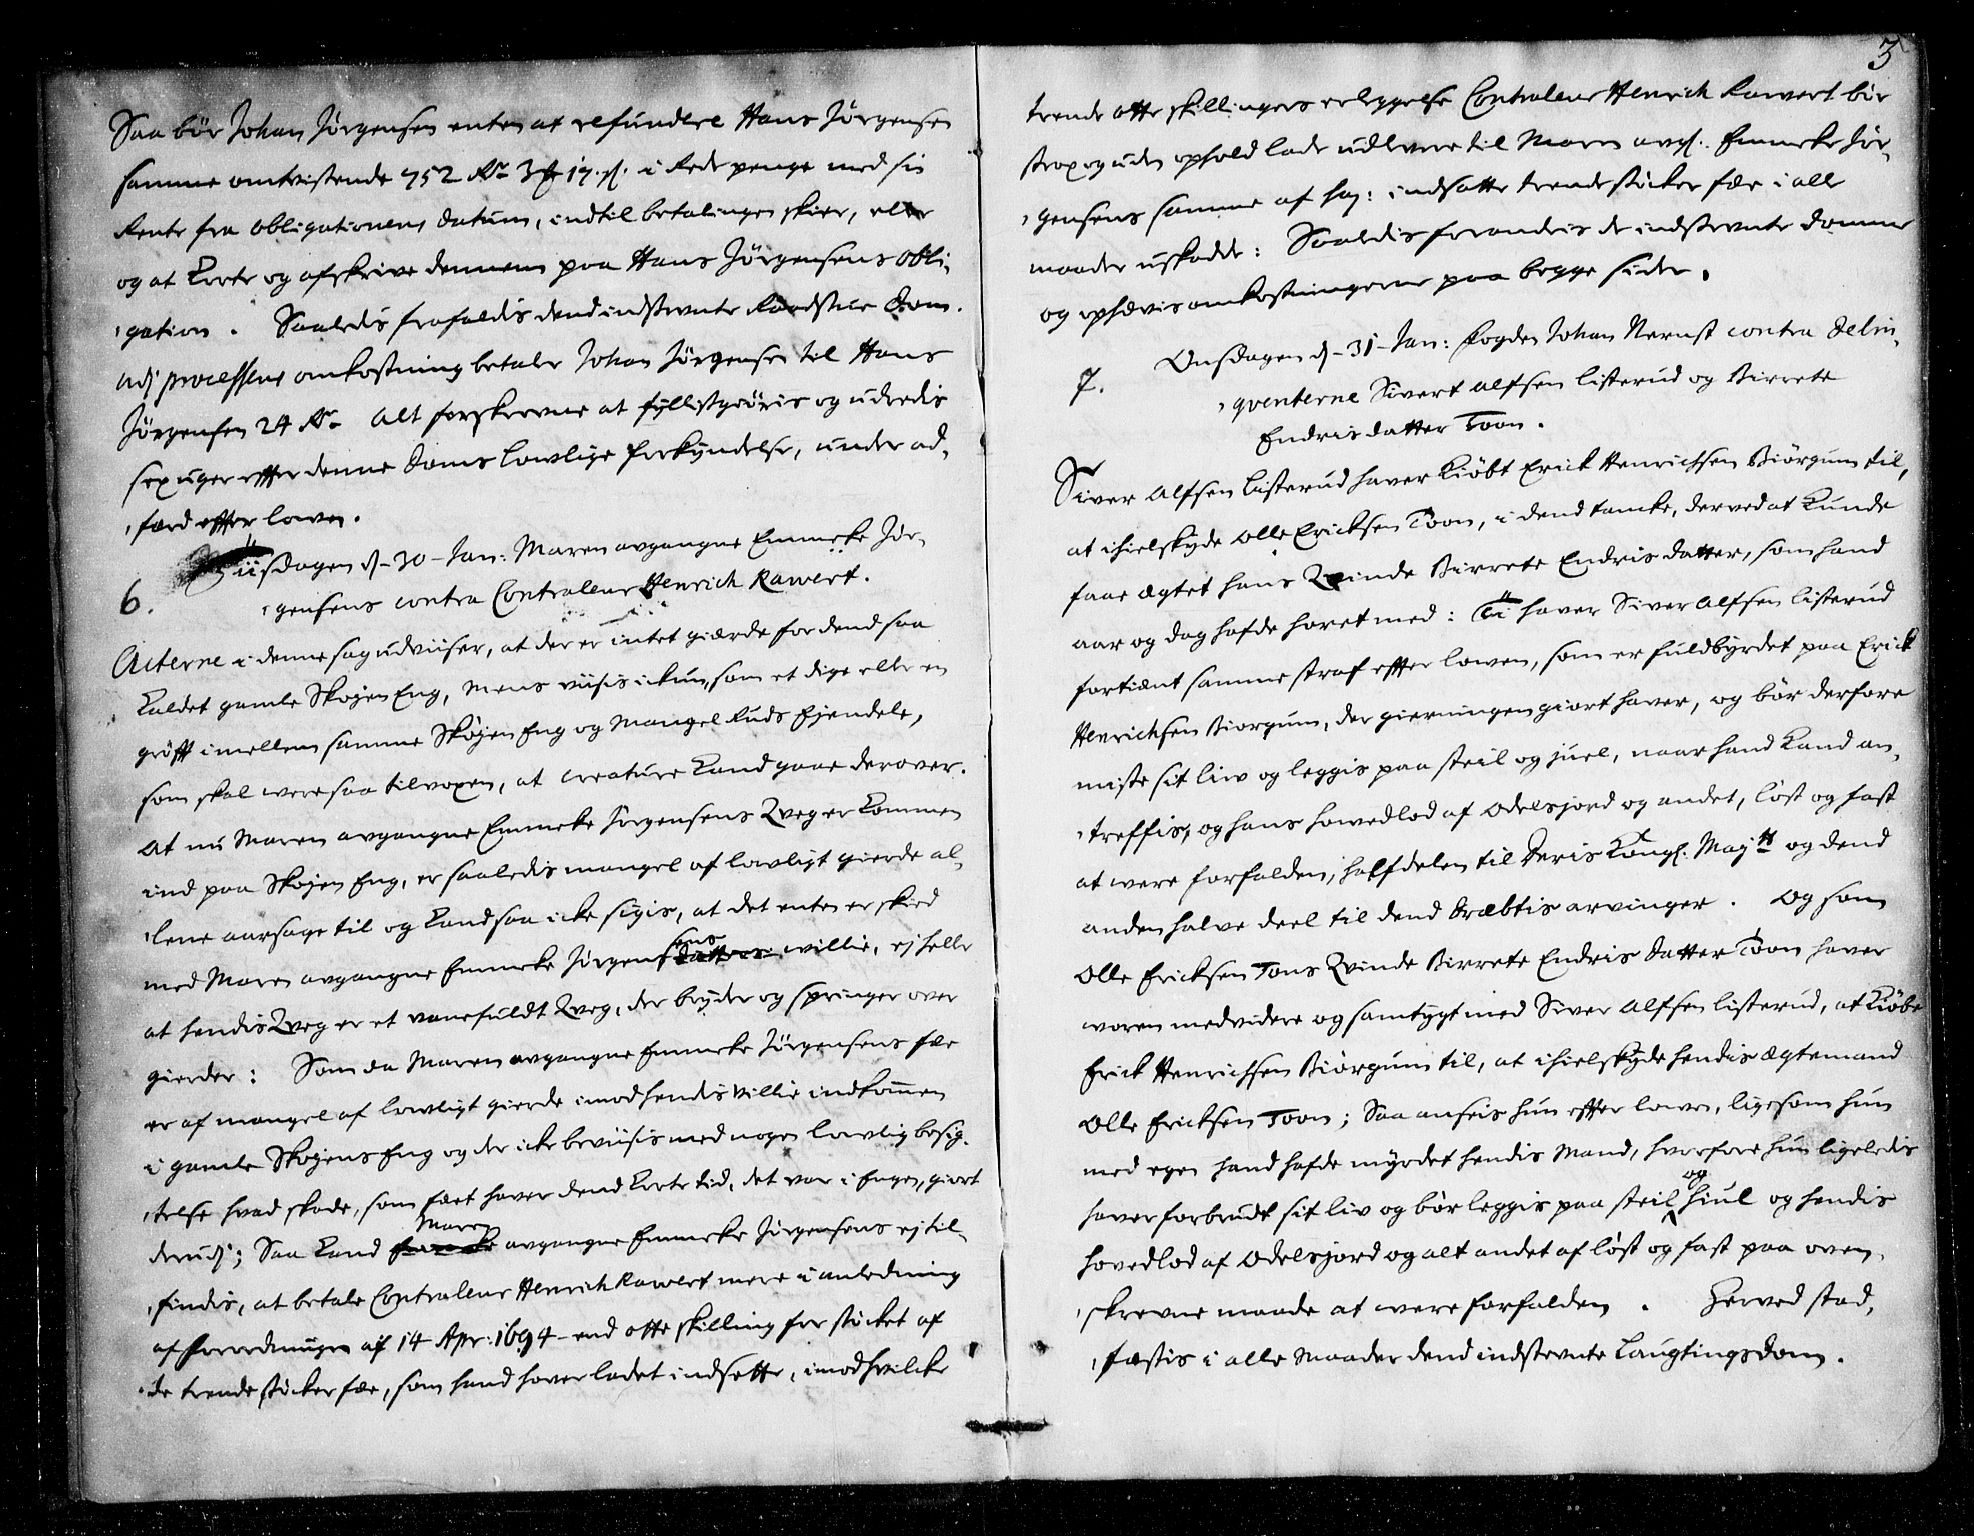 Saa bör Johan Jörgensen enten at refundere Hans Jörgensen
samme omtvistende 752 Rdr 3 ₰ 17 s. i Rede penge med sin
Rente fra obligationens datum, indtil betalingen skier, eller
og at Korte og afskrive dennem paa Hans Jörgensens obli-
gation. Saaledis frafaldis dend indstevnte Raadstue dom.
udj processens omkostning betaler Johan Jörgensen til Hans
Jörgensen 24 Rdr alt forskrevne at fyllistgiöris og udredis
sex uger effter denne doms lowlige forkyndelse, under ad-
færd effter lowen.
Tiisdagen d. 30 Jan: Maren avgangne Emmeke Jör-
6. gensens contra Contraleur Henrich Rawert.
Acterne i denne sag udviiser, at der er intet gierde for dend saa
kaldet gamle Skøjen Eng, mens viisis ickun, som et dige eller en
gröfft imellem samme Skøjen Eng og Mangel Ruds Ejendele,
som skal were saa tilvoxen, at creature kand gaae derover.
At nu Maren avgangne Emmeke Jörgensens Qveg er kommen
ind paa Skøjen Eng, er saaledis mangel af lovligt gierde al-
lene aarsage til og kand saa icke sigis, at det enten er skeed
med Maren avgangne Emmeke Jörgensens willie, ej heller
at hendis Qveg er et vanefuldt Qveg, der bryder og springer over
gierder: Som da Maren avgangne Emmeke Jörgensens fæe
er af mangel af lowligt gierde imod hendis villie indkommen
i gamle Skøjens Eng og der icke beviisis med nogen lowlig besig-
telse hvad skade, som fæet haver dend korte tid, det var i Engen, giort
derudj; Saa kand Maren avgangne Emmeke Jörgensens ej til-
findis, at betale Contraleur Henrich Rawert mere i anledning
af forordningen af 14 Apr: 1694 end otte skilling for stöcket af
de trende stöcker fæe, som hand haver ladet indsette, imod hvilcke
3
trende otte skillingers erleggelse Contraleur Henrich Rawert bör
strax og uden ophold lade udlevere til Maren avg. Emmeke Jör-
gensens samme af ham indsatte trende stöcker fæe i alle
maader uskadde: Saaledis forandris de indstevnte domme
og ophævis omkostningerne paa begge sider.
Onsdagen d. 31 Jan: fogden Johan Nernst contra Delin-
7. qventerne Sivert Alfsen Listerud og Birrete
Endris datter Toon.
Siver Alfsen Listerud haver kiöbt Erick Henrichsen Biörgum til,
at ihielskyde Olle Ericksen Toon, i dend tancke, derved at kunde
faae ægtet hans Qvinde Birrete Endris datter, som hand
aar og dag hafde horet med: Ti haver Siver Alfsen Listerud
fortient samme straf effter lowen, som er fuldbyrdet paa Erick
Henrichsen Biörgum, der gierningen giort haver, og bör derfore
miste sit liv og leggis paa steil og hiuel, naar hand kand an-
treffis, og hans howedlod af odelsjord og andet, löst og fast
at were forfalden, halfdelen til Deris Kongl. Maj:tt og dend
anden halve deel til dend dræbtis arvinger. Og som
Olle Ericksen Tons Qvinde Birrete Endris datter Toon haver
waren medvidere og samtygt med Siver Alfsen Listerud, at kiöbe
Erick Henrichsen Biörgum til, at ihielskyde hendis ægtemand
Olle Ericksen Toon; Saa anseis hun effter lowen, ligesom hun
med egen haand hafde myrdet hendis mand, hvorfore hun ligeledis
haver forbrudt sit liv og bör leggis paa steil og hiul og hendis
hovedlod af odelsjord og alt andet af löst og fast paa oven-
skrevne maade at were forfalden. Herved stad-
fæstis i alle maader dend indstevnte Laugtingsdom.